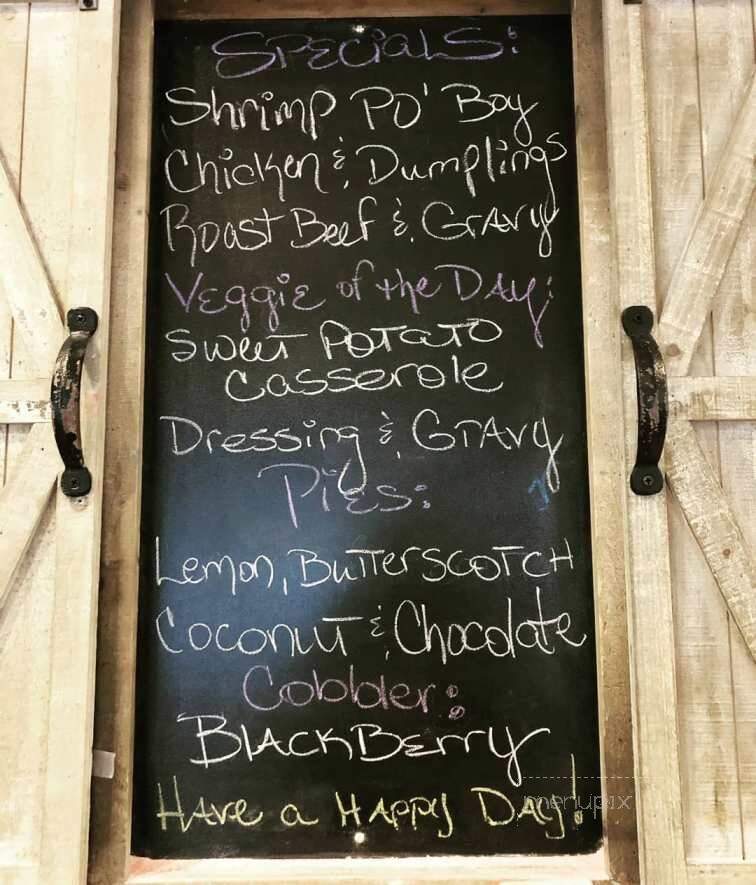 Specials:
Shrimp Po' Boy
Chicken & Dumplings
Roast Beef & Gravy
Veggie of the Day:
Sweet Potato
Casserole
Dressing & Gravy
Pies:
Lemon, Butterscotch
Coconut & Chocolate
Cobbler:
BlackBerry
Have a Happy Day!
menupix